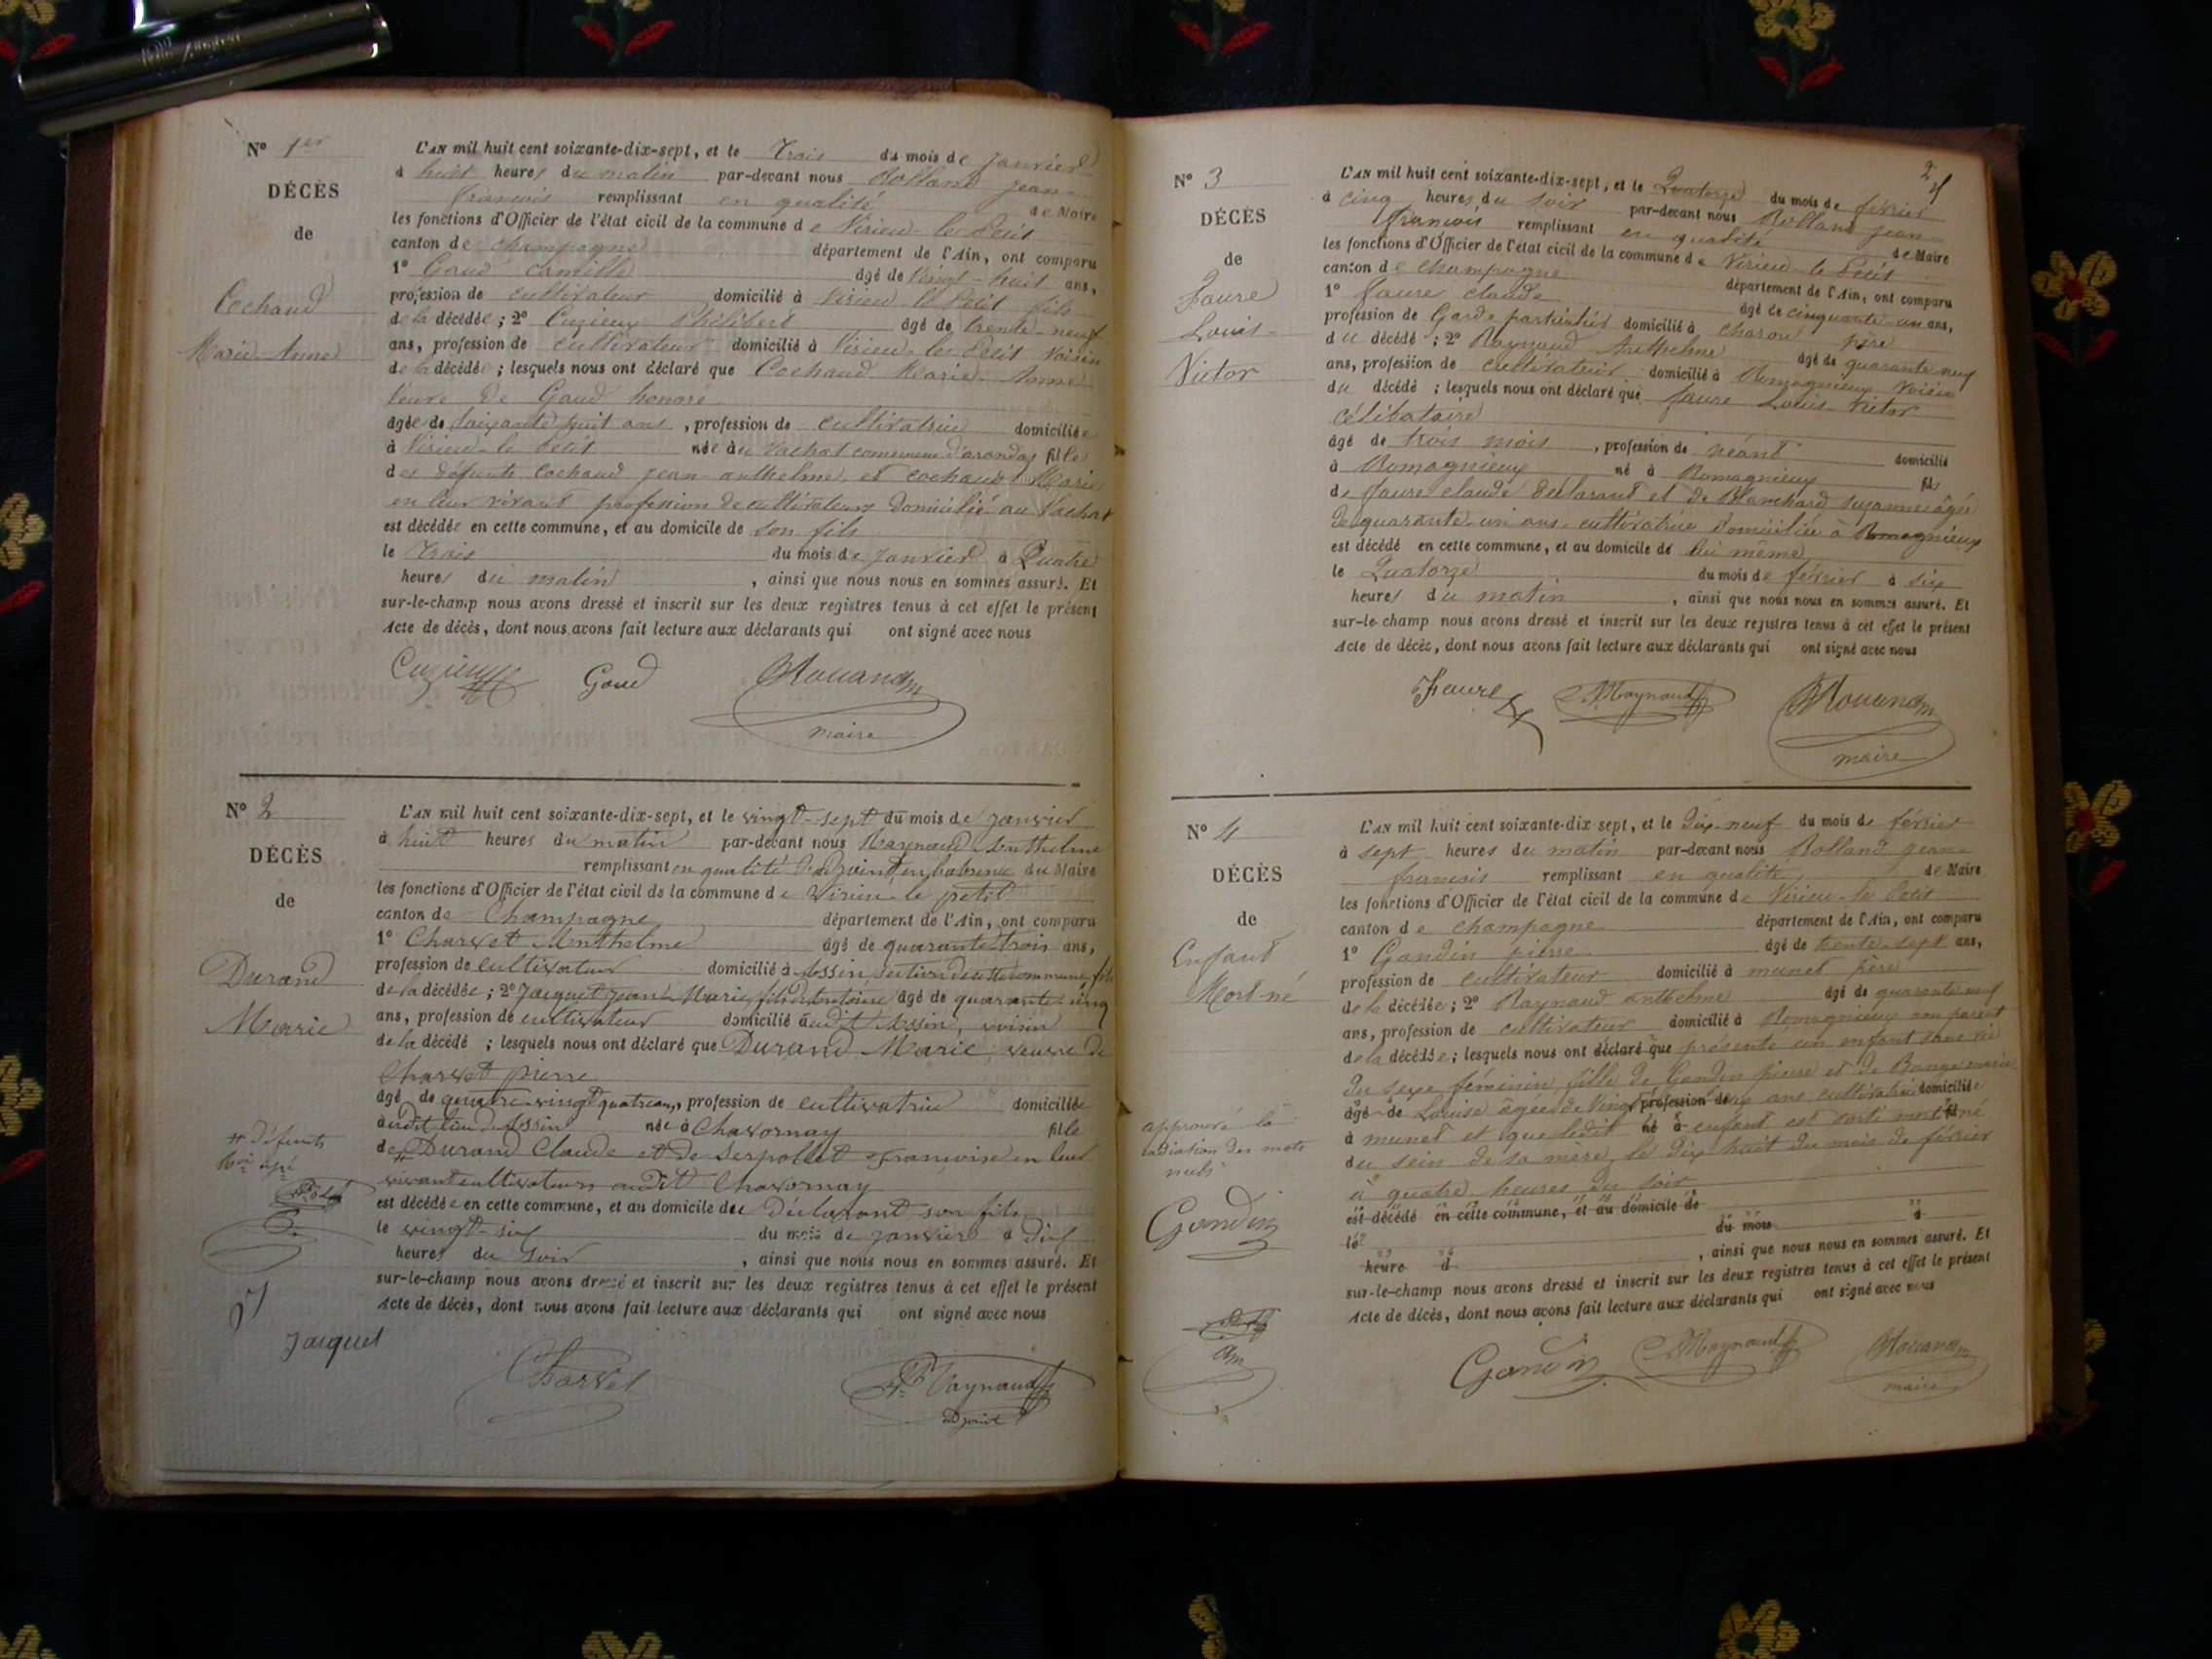 N° 1er
DÉCÈS
de
Cochaud
Marie Anne
L'AN mil huit cent soixante-dix-sept, et le Trois du mois de janvier
à huit heures du matin par-devant nous Rolland jean
françois remplissant en qualité de Maire
les fonctions d'Officier de l'état civil de la commune de Virieu le Petit
canton de champagne département de l'Ain, ont comparu
1° Gaud camille âgé de vingt-huit ans,
profession de cultivateur domicilié à Virieu le Petit fils
de la décédée ; 2° Cuzieux Philibert âgé de trente-neuf
ans, profession de cultivateur domicilié à Virieu le Petit voisin
de la décédée ; lesquels nous ont déclaré que Cochaud Marie Anne
veuve de Gaud honoré
âgée de soixante huit ans, profession de cultivatrice domiciliée
à Virieu le Petit née au Vachat commune d'arandas fille
des défunts cochaud jean anthelme et cochaud Marie
en leur vivant profession de cultivateurs domicilié au Vachat
est décédée en cette commune, et au domicile de son fils
le Trois du mois de janvier à Quatre
heures du matin, ainsi que nous nous en sommes assuré. Et
sur-le-champ nous avons dressé et inscrit sur les deux registres tenus à cet effet le présent
Acte de décès, dont nous avons fait lecture aux déclarants qui ont signé avec nous
Cuzieux Gaud
maire
N° 2
DÉCÈS
de
Durand
Marie
# défunts
L'AN mil huit cent soixante-dix-sept, et le vingt-sept du mois de janvier
à huit heures du matin par-devant nous Raynaud Anthelme
remplissant en qualité d'adjoint en l'absence du Maire
les fonctions d'Officier de l'état civil de la commune de Virieu le petit
canton de Champagne département de l'Ain, ont comparu
1° Charvet Anthelme âgé de quarante trois ans,
profession de cultivateur domicilié à Assin section de cette commune fils
de la décédée ; 2° Jacquet Jean Marie fils d'Antoine âgé de quarante cinq
ans, profession de cultivateur domicilié audit Assin, voisin
de la décédé ; lesquels nous ont déclaré que Durand Marie, veuve de
Charvet pierre
âgé de quatre-vingt quatre ans, profession de cultivatrice domiciliée
audit lieu d'Assin née à Chavornay fille
de # Durand Claude et de Serpollet Françoise en leur
vivant cultivateurs audit Chavornay
est décédée en cette commune, et au domicile du déclarant son fils
le vingt-six du mois de janvier à dix
heures du soir, ainsi que nous nous en sommes assuré. Et
sur-le-champ nous avons dressé et inscrit sur les deux registres tenus à cet effet le présent
Acte de décès, dont nous avons fait lecture aux déclarants qui ont signé avec nous
Jacquet
Charvet Raynaud
adjoint
2
N° 3
DÉCÈS
de
Faure
Louis
Victor
L'AN mil huit cent soixante-dix-sept, et le Quatorze du mois de février
à cinq heures du soir par-devant nous Rolland jean
françois remplissant en qualité de Maire
les fonctions d'Officier de l'état civil de la commune de Virieu le Petit
canton de champagne département de l'Ain, ont comparu
1° faure claude âgé de cinquante-un ans,
profession de Garde particulier domicilié à charon père
du décédé ; 2° Raynaud Anthelme âgé de quarante neuf
ans, profession de cultivateur domicilié à Romagnieux voisin
du décédé ; lesquels nous ont déclaré que faure Louis Victor
célibataire
âgé de trois mois, profession de néant domicilié
à Romagnieux né à Romagnieux fils
de faure claude déclarant et de Blanchard suzanne âgée
de quarante-un ans cultivatrice domiciliée à Romagnieux
est décédé en cette commune, et au domicile de lui même
le Quatorze du mois de février à six
heures du matin, ainsi que nous nous en sommes assuré. Et
sur-le-champ nous avons dressé et inscrit sur les deux registres tenus à cet effet le présent
Acte de décès, dont nous avons fait lecture aux déclarants qui ont signé avec nous
Faure Raynaud
maire
N° 4
DÉCÈS
de
Enfant
Mort-né
approuvé la
radiation des mots
nuls
Gandin
L'AN mil huit cent soixante-dix sept, et le Dix-neuf du mois de février
à sept heures du matin par-devant nous Rolland jean
françois remplissant en qualité de Maire
les fonctions d'Officier de l'état civil de la commune de Virieu le Petit
canton de champagne département de l'Ain, ont comparu
1° Gandin pierre âgé de trente-sept ans,
profession de cultivateur domicilié à munet père
de la décédée ; 2° Raynaud anthelme âgé de quarante neuf
ans, profession de cultivateur domicilié à Romagnieux non parent
de la décédée ; lesquels nous ont déclaré que présente un enfant sans vie
du sexe féminin fille de Gandin pierre et de Bange marie
âgé de Louise âgée de Vingt profession de ans cultivatrice domiciliée
à munet et que ledit né à enfant est sorti mort né
du sein de sa mère, le dix huit du mois de février
à quatre heures du soir
est décédé en cette commune, et au domicile de
le du mois à
heure d , ainsi que nous nous en sommes assuré. Et
sur-le-champ nous avons dressé et inscrit sur les deux registres tenus à cet effet le présent
Acte de décès, dont nous avons fait lecture aux déclarants qui ont signé avec nous
Gandin Raynaud
maire